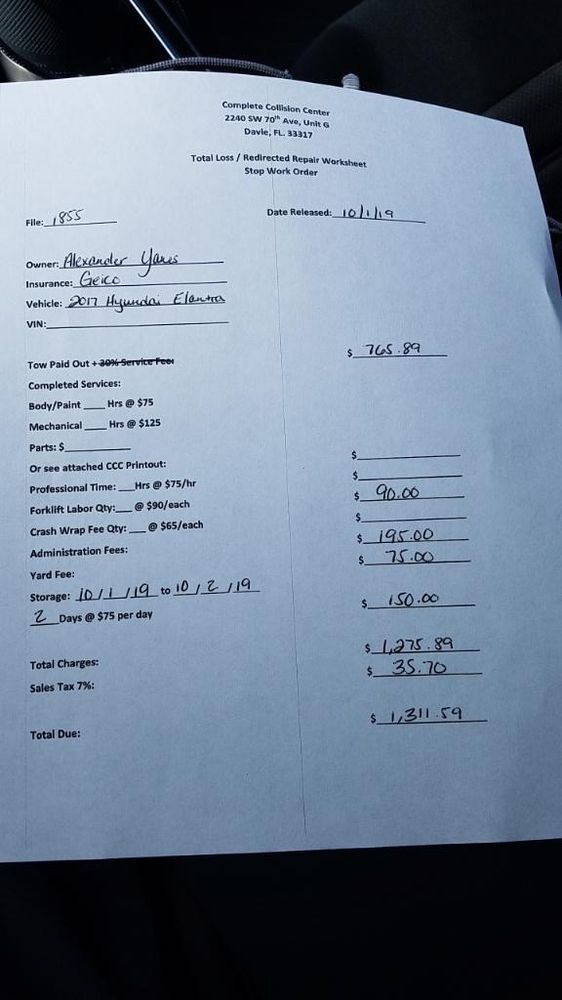 Complete Collision Center
2240 SW 70th Ave, Unit G
Davie, FL. 33317
Total Loss / Redirected Repair Worksheet
Stop Work Order
File: 1855 Date Released: 10/1/19
Owner: Alexander Yanes
Insurance: Geico
Vehicle: 2017 Hyundai Elantra
VIN:
Tow Paid Out + 30% Service Fee: $ 765.89
Completed Services:
Body/Paint ____ Hrs @ $75
Mechanical ____ Hrs @ $125
Parts: $
Or see attached CCC Printout: $
Professional Time: ___Hrs @ $75/hr $
Forklift Labor Qty:___ @ $90/each $ 90.00
Crash Wrap Fee Qty: ___ @ $65/each $
Administration Fees: $ 195.00
Yard Fee: $ 75.00
Storage: 10/1/19 to 10/2/19
2 Days @ $75 per day $ 150.00
Total Charges: $ 1,275.89
Sales Tax 7%: $ 35.70
Total Due: $ 1,311.59